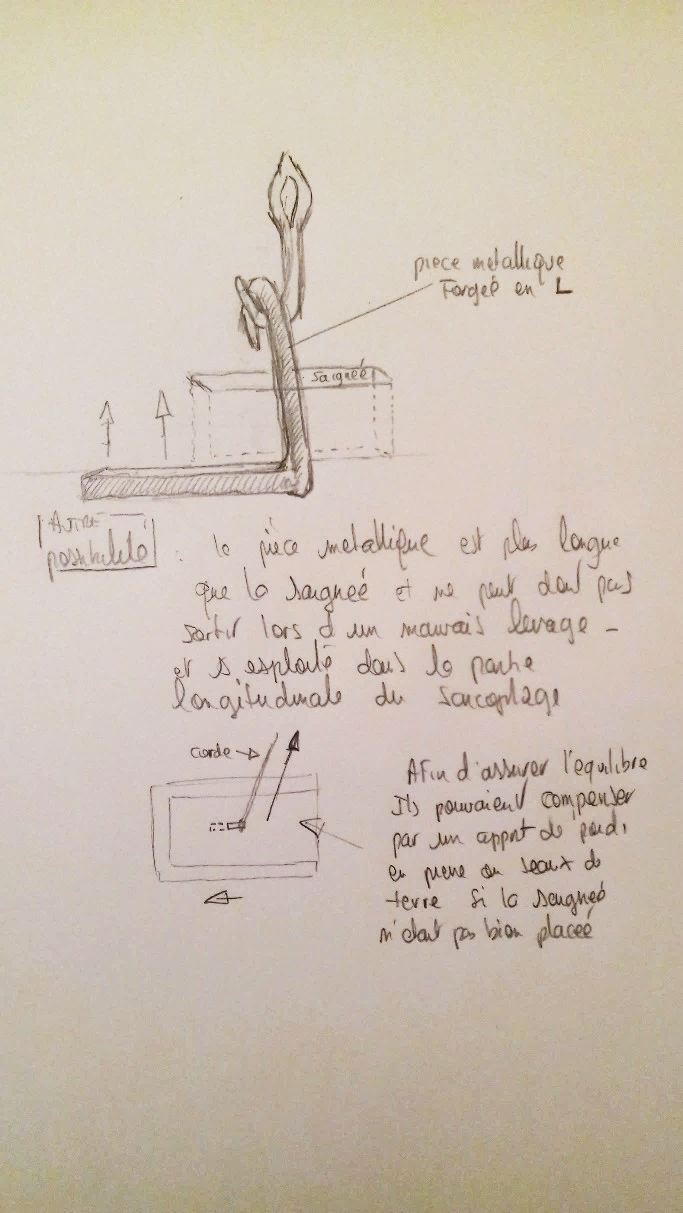 piece metallique
Forgeé en L
Saignée
AUTRE
possibilité : la pièce metallique est plus longue
que la saigneé et ne peut dont pas
sortir lors d'un mauvais levage -
et s'exploite dans la partie
longitudinale du sarcophage
corde
Afin d'assurer l'equilibre
Ils pouvaient compenser
par un apport de poids
en pierre ou seaux de
terre Si la saigneé
n'etait pas bien placeé